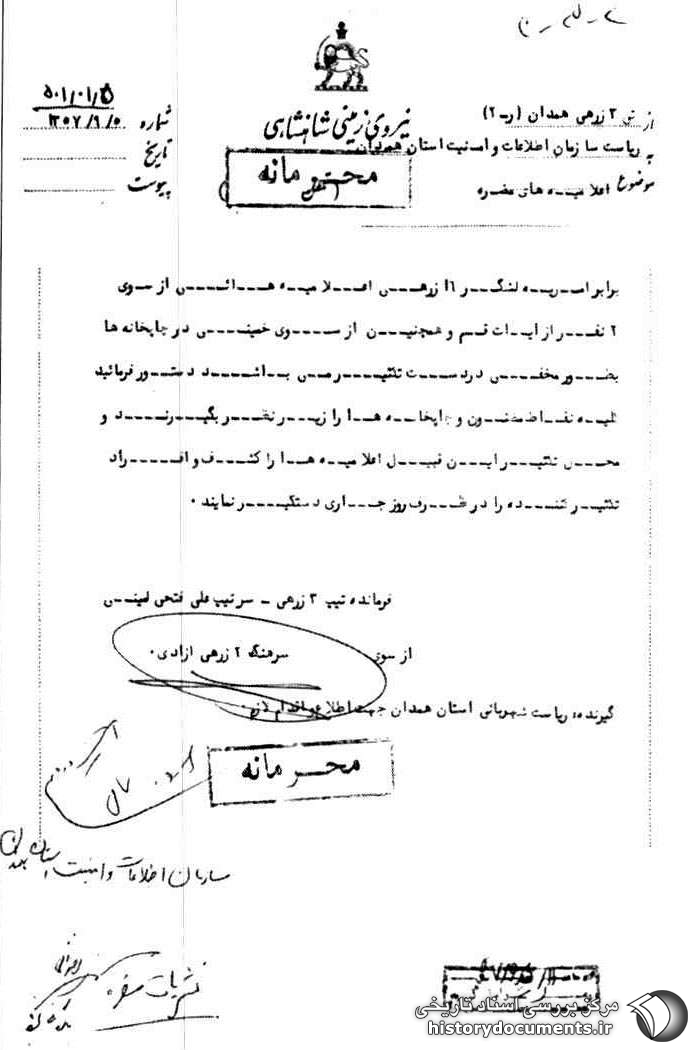 نیروی زمینی شاهنشاهی
از تیپ ۳ زرهی همدان (رـ۲)
به ریاست سازمان اطلاعات و امنیت استان همدان
موضوع اعلامیه های مضره
شماره ۵۰۱/۰۱/
تاریخ ۱۳۵۷/۹/۵
پیوست
محرمانه
برابر امریه لشگر ۱۶ زرهی اعلامیه هائی از سوی
۲ نفر از ایات قم و همچنین از سوی خمینی در چاپخانه ها
بطور مخفی در دست تکثیر می باشد دستور فرمائید
کلیه نقاط مظنون و چاپخانه ها را زیر نظر بگیرند و
محل تکثیر این قبیل اعلامیه ها را کشف و افراد
تکثیر کننده را در ظرف روز جاری دستگیر نمایند ۰
فرمانده تیپ ۳ زرهی ـ سرتیپ علی فتحی امینی
از سوی سرهنگ ۲ زرهی ازادی۰
گیرنده: ریاست شهربانی استان همدان جهت اطلاع و اقدام لازم۰
محرمانه
سازمان اطلاعات و امنیت استان همدان
نشریات مضره
مرکز بررسی اسناد تاریخی
historydocuments.ir